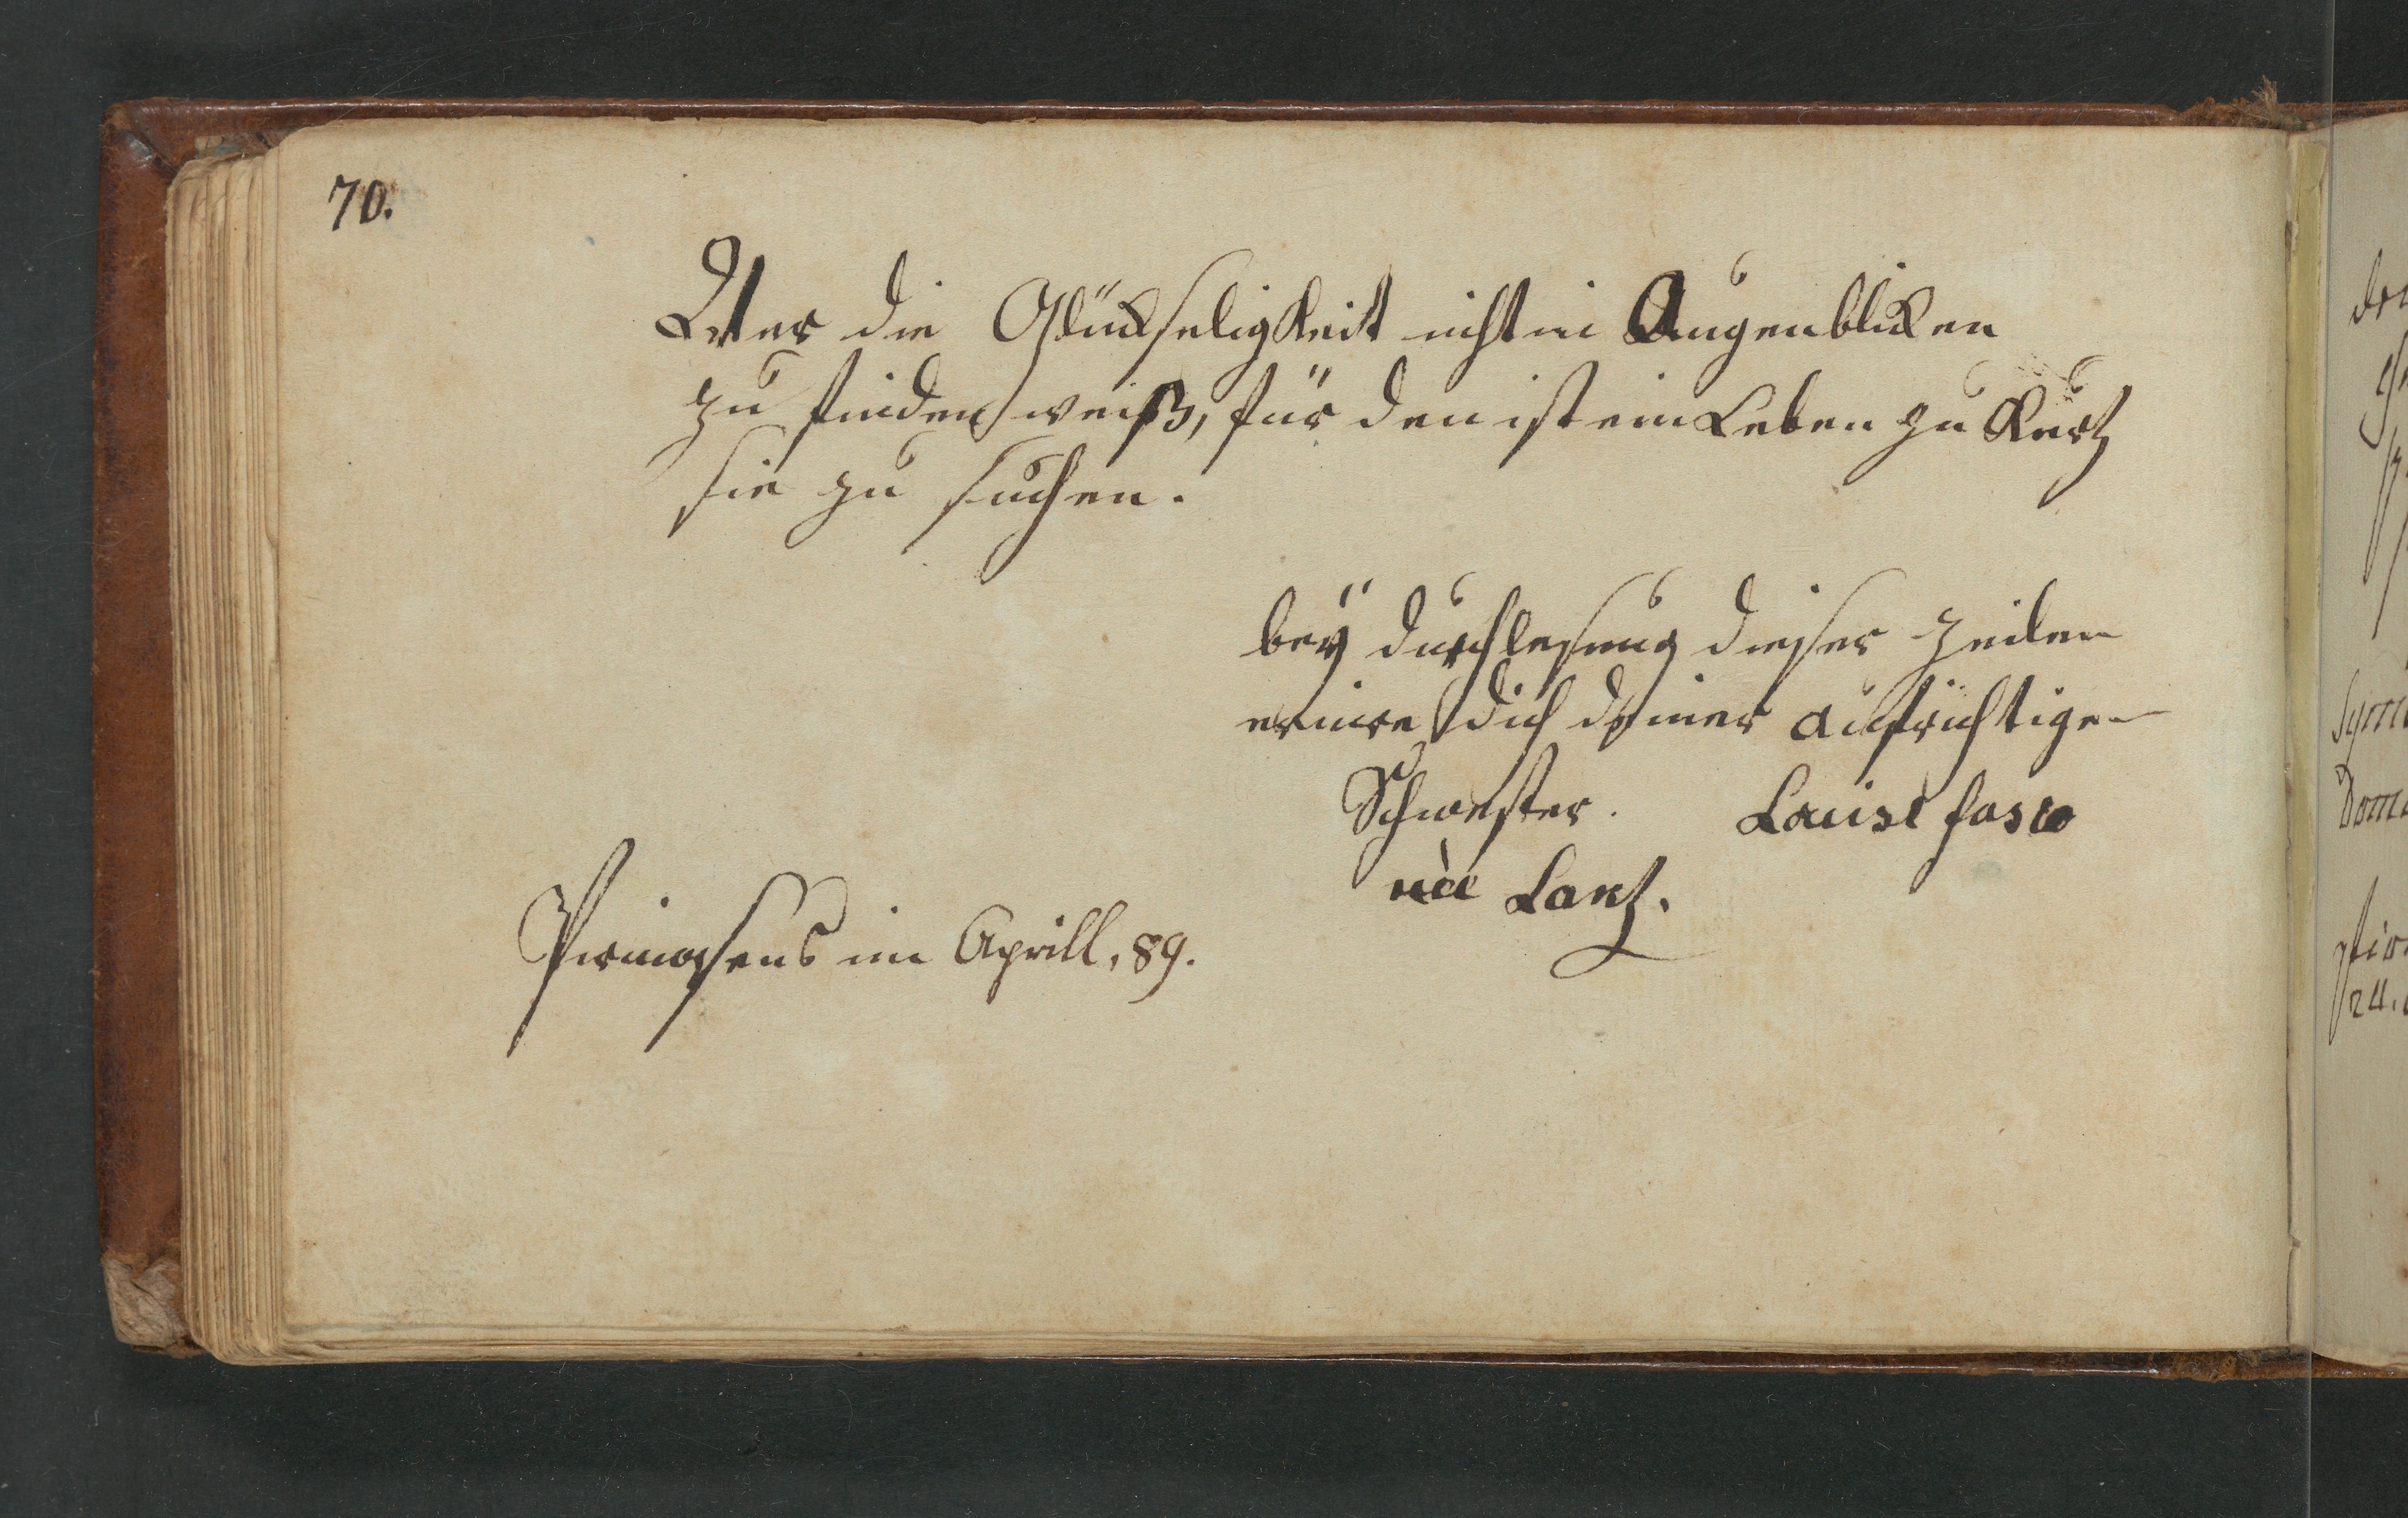 70.
Wer die Glückseligkeit nicht in Augenblicken
zu finden weiß, für den ist ein Leben zu Kurtz
sie zu suchen.
beÿ durchlesung dieser zeilen
erinre dich deiner aufrichtigen
Schwester. Louise
nèe Lantz.
Pirmasens im Aprill, 89.